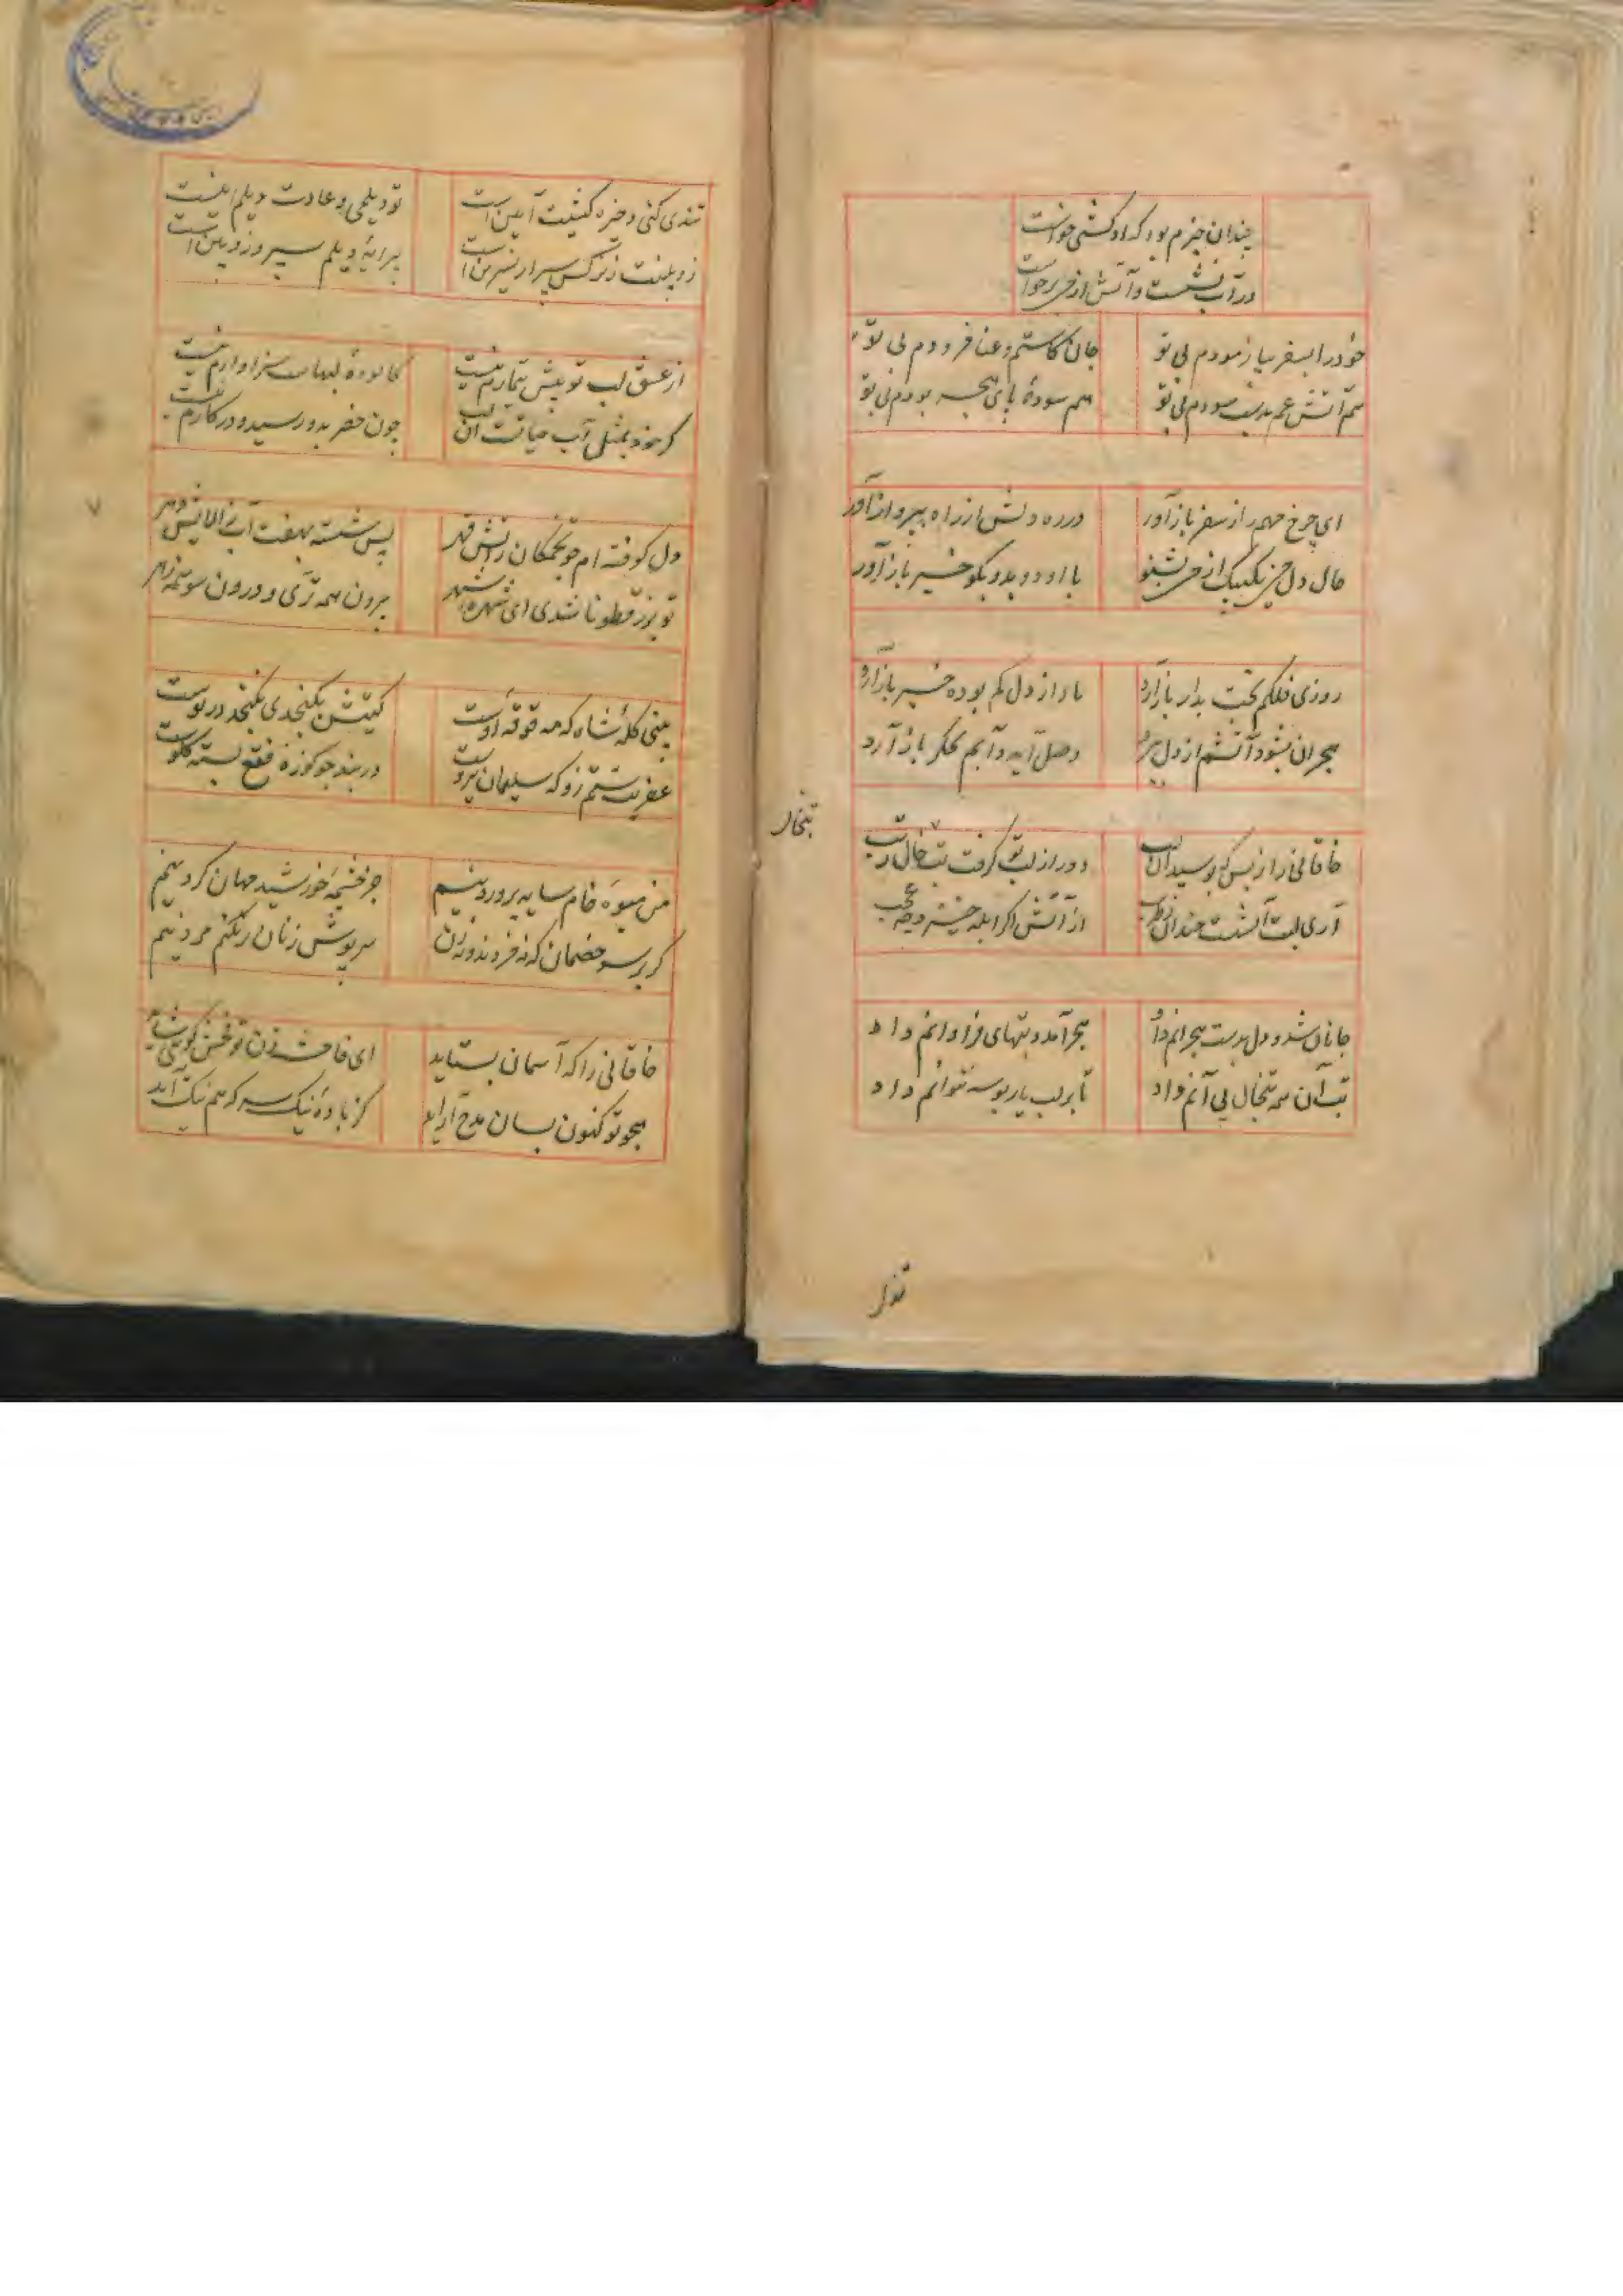 چندان خبرم بود که او کشتی خواست
در آب نشست و آتش از من برخاست
خود را بسفر بیازمودم بی تو جان کاستم و عنا فزودم بی تو
هم آتش غم بدست سودم بی تو هم سودهٔ پای هجر بودم بی تو
ای چرخ مهم را ز سفر بازآور در ره دلش از راه ببر و بازآور
حال دل من یکیک از من بشنو با او دو بدو بگو خبر بازآور
روزی فلکم بخت بد ار بازآرد یار از دل گم بوده خبر بازآرد
هجران بشود آتشم از دل ببرد وصل آید و آبم بجگر بازآرد
خاقانی را ز بس که بوسید آن لب دور از لب تو گرفت تبخال ز تب
آری لبت آتشست خندان ز طرب از آتش اگر آبله خیزد چه عجب
تبخال
جانان شد و دل بدست هجرانم داد هجر آمد و تبهای فراوانم داد
تب آن همه تبخال پی آنم داد تا بر لب یار بوسه نتوانم داد
تندی کنی و خیره کشیت آیین است تو دیلمی و عادت دیلم اینست
زوبینت ز نرگس سپر از نسرین است پیرایهٔ دیلم سپر و زوبین است
از عشق لب تو بیش تیمارم نیست کالودهٔ لبهاست سزاوارم نیست
گر خود بمثل آب حیاتست آن لب چون خضر بدو رسید در کارم نیست
دل کوفته ام چو تخمکان ز آتش قهر پس شسته بهفت آب ز آلایش دهر
تو بزرقطونا شدی ای شهره شهر بیرون همه تری و درون سو همه زهر
بینی کله شاه که مه قوقهٔ اوست گیتیش بگنجدی نگنجد در پوست
عفریت ستم ز او که سلیمان نیروست در بند چو کوزهٔ فقع بسته گلوست
من میوهٔ خام سایه پرورد نیم جز چشمهٔ خورشید جهان گرد نیم
گر بر سر خصمان که نه فرزند و نه زن سرپوش زنان نفکنم مرد نیم
خاقانی را که آسمان بستاید ای فاحشه زن تو فحش گویی شاید
هجو تو کنون بسان مدح آراید کز بادهٔ نیک سرکه هم نیک آید